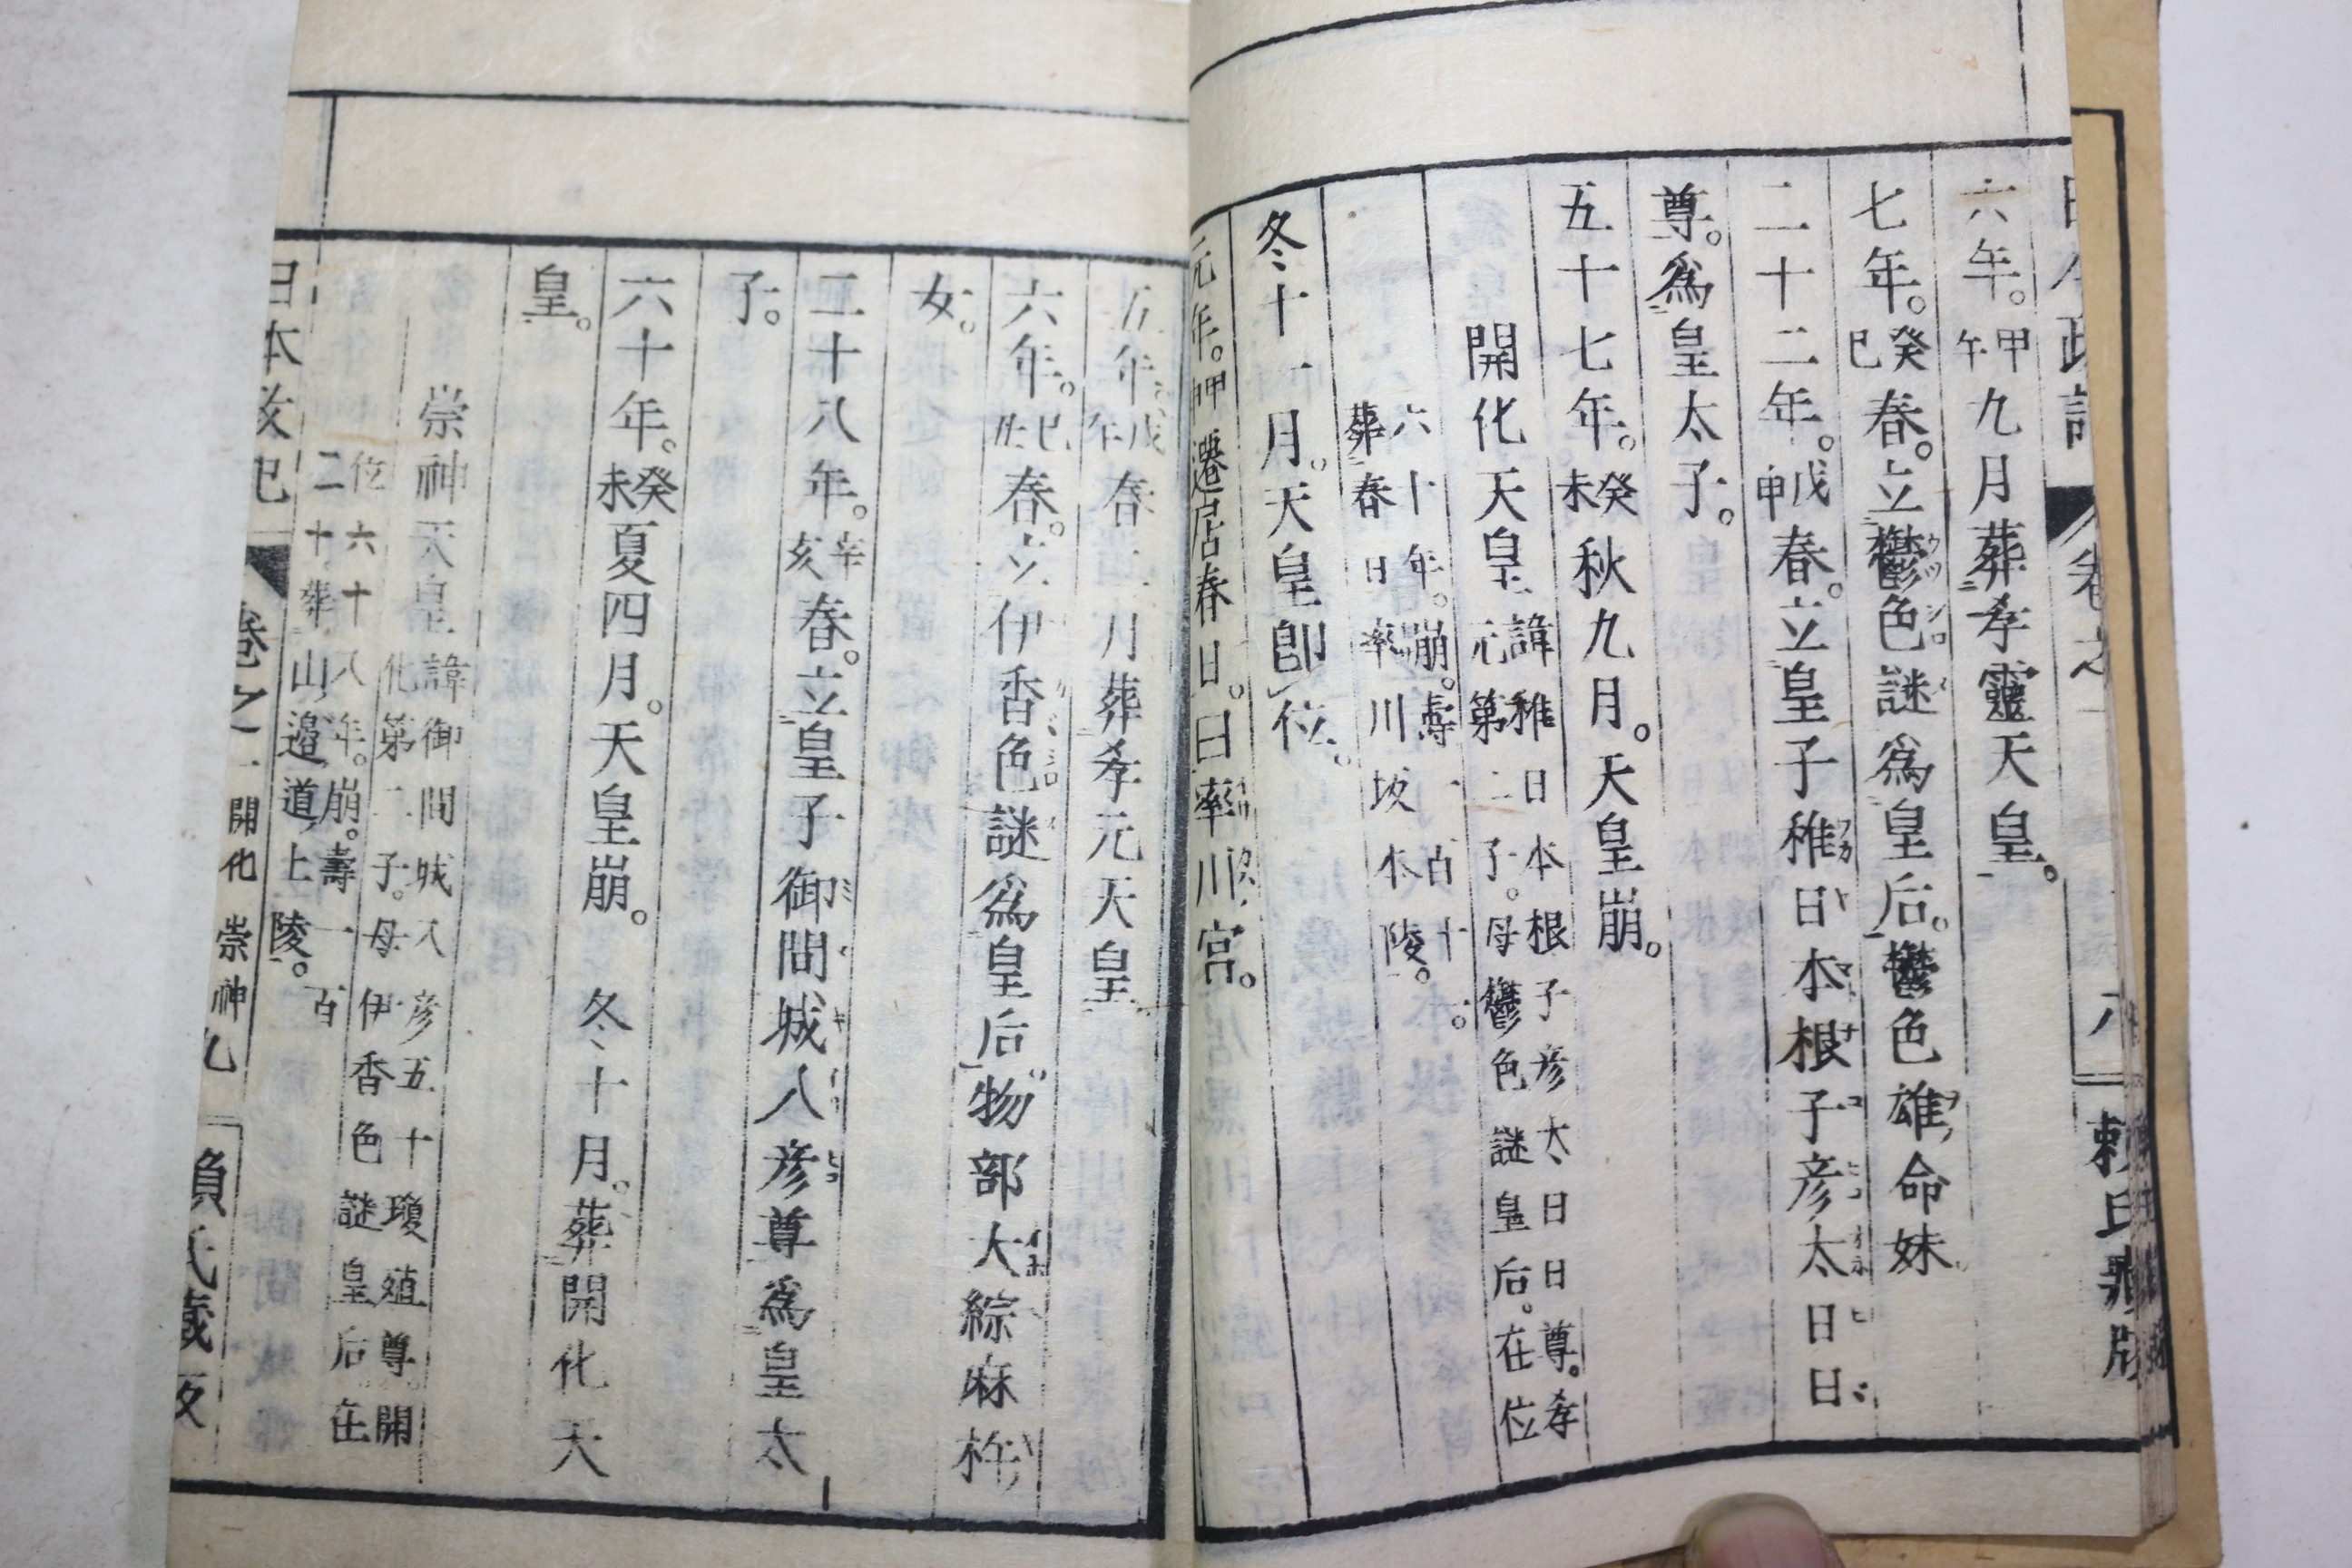 六年。甲午九月葬孝靈天皇。
七年。癸巳春。立鬱色謎爲皇后。鬱色雄命妹
二十二年。戊申春。立皇子稚日本根子彦太日日
尊。爲皇太子。
五十七年。癸未秋九月。天皇崩。
開化天皇 諱稚日本根子彦太日日尊。孝
元第二子。母鬱色謎皇后。在位
六十年。崩。壽一百十一。
葬春日率川坂本陵。
冬十一月。天皇卽位。
元年。甲申遷居春日。曰率川宮。
五年。戊午春二月葬孝元天皇
六年。己丑春。立伊香色謎爲皇后。物部大綜麻杵
女。
二十八年。辛亥春。立皇子御間城入彦尊爲皇太
子。
六十年。癸未夏四月。天皇崩。冬十月。葬開化天
皇。
崇神天皇 諱御間城入彦五十瓊殖尊。開
化第二子。母伊香色謎皇后在
位六十八年。崩。壽一百
二十葬山邉道上陵。
日本政記 卷之一 開化 崇神 九 賴氏藏版